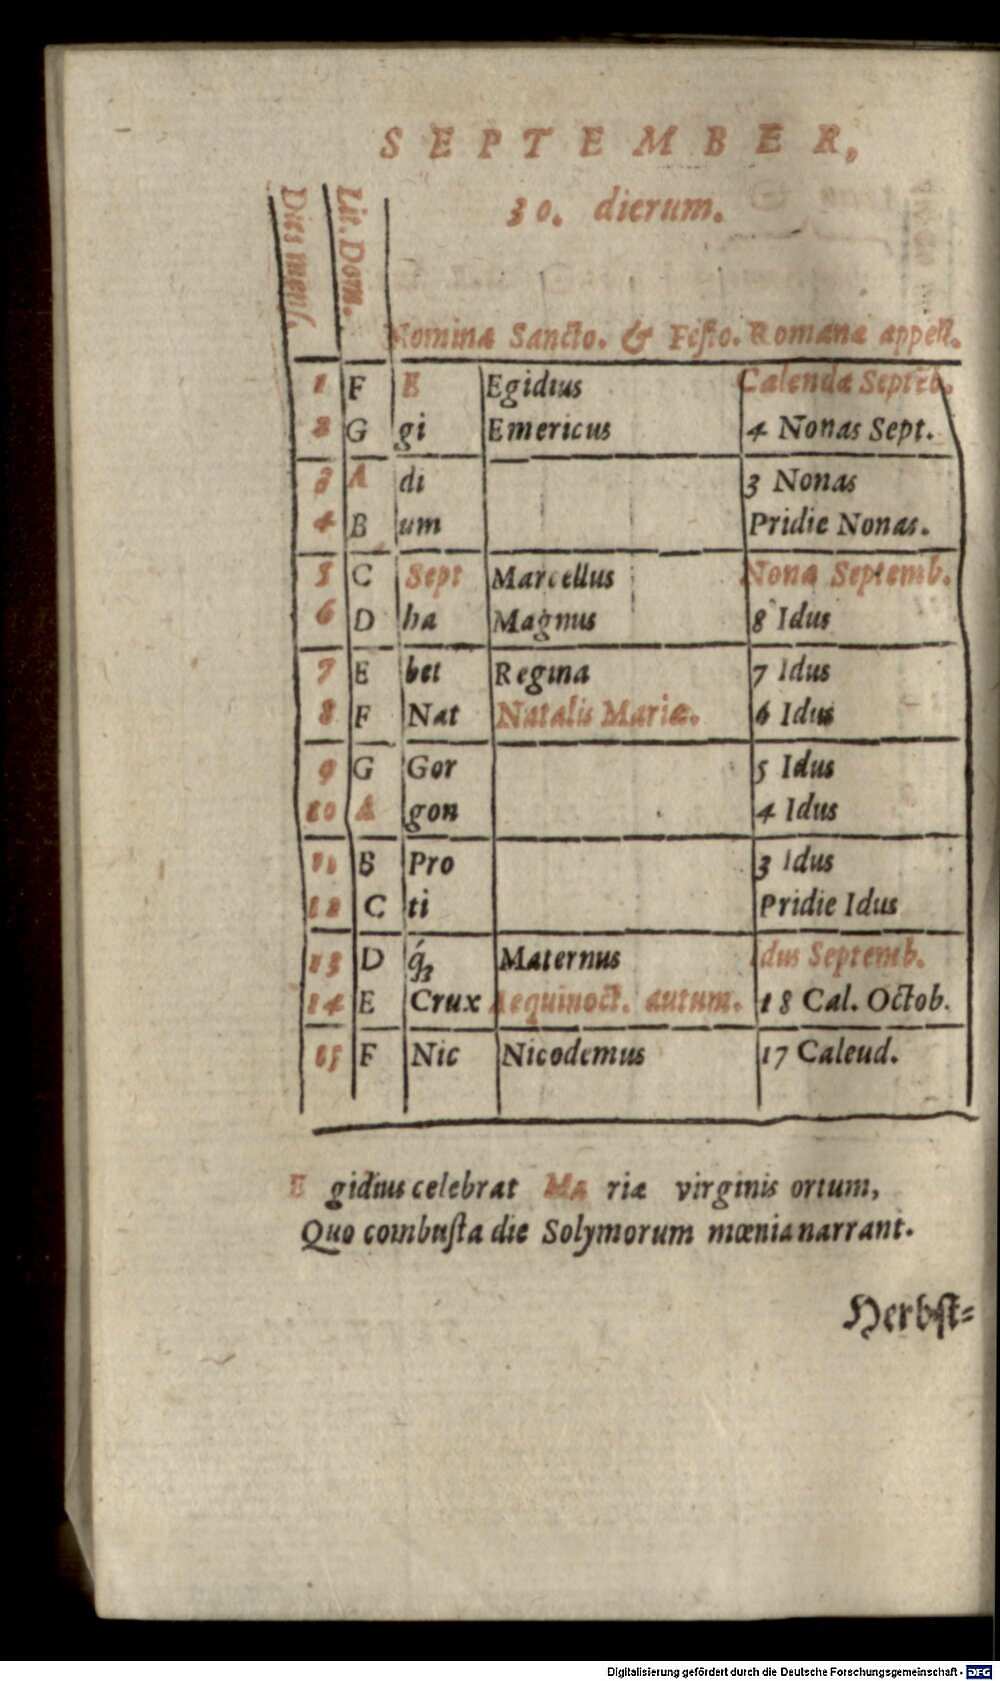 SEPTEMBER,
30. dierum.
Dies mens.
Lit. Dom.
Nomina Sancto. & Festo. Romanæ appell.
1 F E Egidius Calendæ Septēb.
2 G gi Emericus 4 Nonas Sept.
3 A di 3 Nonas
4 B um Pridie Nonas.
5 C Sept Marcellus Nonæ Septemb.
6 D ha Magnus 8 Idus
7 E bet Regina 7 Idus
8 F Nat Natalis Mariæ. 6 Idus
9 G Gor 5 Idus
10 A gon 4 Idus
11 B Pro 3 Idus
12 C ti Pridie Idus
13 D q́ꝫ Maternus Idus Septemb.
14 E Crux Aequinoct. autum. 18 Cal. Octob.
15 F Nic Nicodemus 17 Caleud.
E gidius celebrat Ma riæ virginis ortum,
Quo combuſta die Solymorum mœnia narrant.
Herbſt-
Digitalisierung gefördert durch die Deutsche Forschungsgemeinschaft - DFG